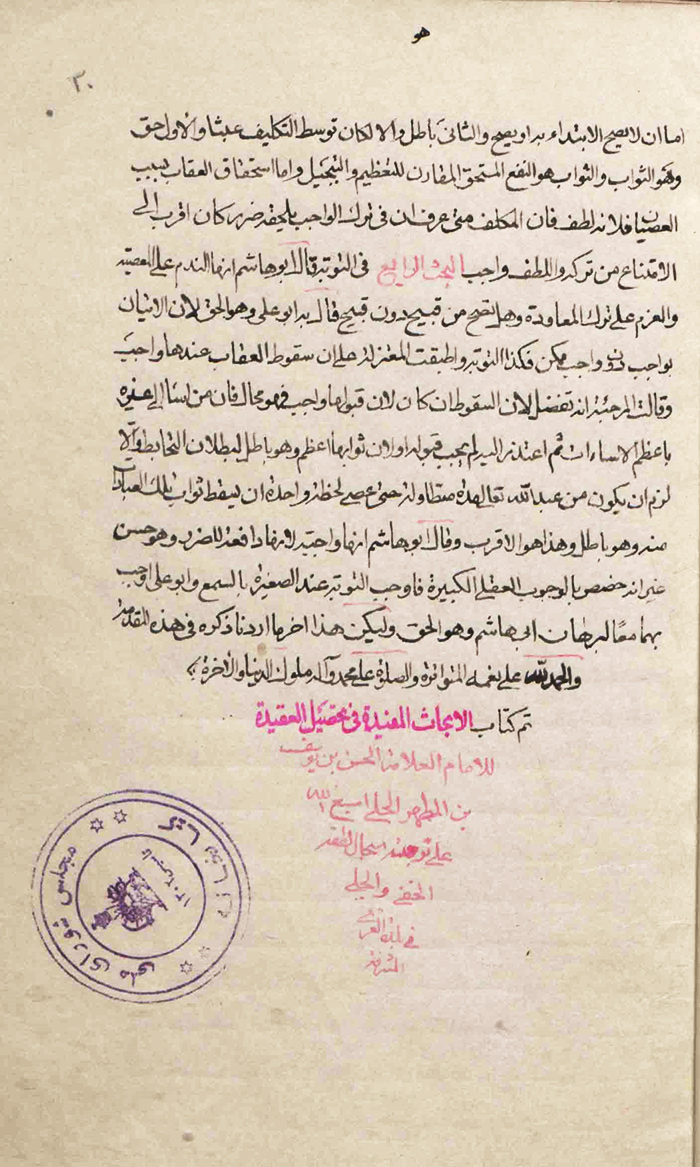 هو
٣٠
اما ان لا يصح الابتداء به او يصح والثانى باطل والا لكان توسط التكليف عبثا والاول حق
وهو الثواب والثواب هو النفع المستحق المقارن للتعظيم والتبجيل واما استحقاق العقاب بسبب
العصيان فلانه لطف فان المكلف متى عرف ان فى ترك الواجب يلحقه ضرر كان اقرب الى
الامتناع من تركه واللطف واجب البحث الرابع فى التوبة قال ابو هاشم انها الندم على المعصية
والعزم على ترك المعاودة وهل يصح من قبيح دون قبيح قال به ابو على وهو الحق لان الاتيان
بواجب دون واجب ممكن فكذا التوبة واطبقت المعتزلة على ان سقوط العقاب عندها واجب
وقالت المرجئة انه تفضل لان السقوط ان كان لان قبولها واجب فهو محال فان من اساء الى غيره
باعظم الاساءات ثم اعتذر اليه لم يجب قبوله او لان ثوابها اعظم وهو باطل لبطلان التحابط والا
لزم ان يكون من عبد الله تعالى مدة متطاولة حتى عصى لحظة واحدة ان يسقط ثواب تلك العبادات
منه وهو باطل وهذا هو الاقرب وقال ابو هاشم انها واجبة لانها دافعة للضرر وهو حسن
غير انه خصص بالوجوب العقلى الكبيرة فاوجب التوبة عند الصغيرة بالسمع وابو على اوجب
بهما معا لبرهان ابى هاشم وهو الحق وليكن هذا اخر ما اردنا ذكره فى هذه المقدمة
والحمد لله على نعمه المتواترة والصلوة على محمد وآله ملوك الدنيا والآخرة
تم كتاب الابحاث المفيدة فى تحصيل العقيدة
للامام العلامة الحسن بن يوسف
بن المطهر الحلى اسبغ الله
على تربته سجال لطفه
الخفى والجلى
فى بلدة الغرى
الشريفة
مجلس شورای ملی